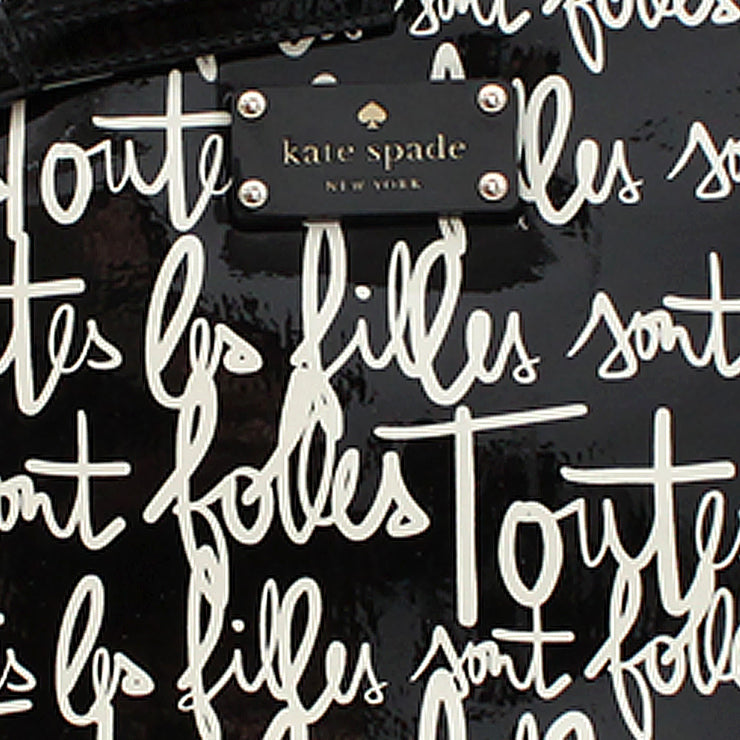 sont folles
kate spade
NEW YORK
Toutes les filles sont
sont folles Toutes
les filles sont folles